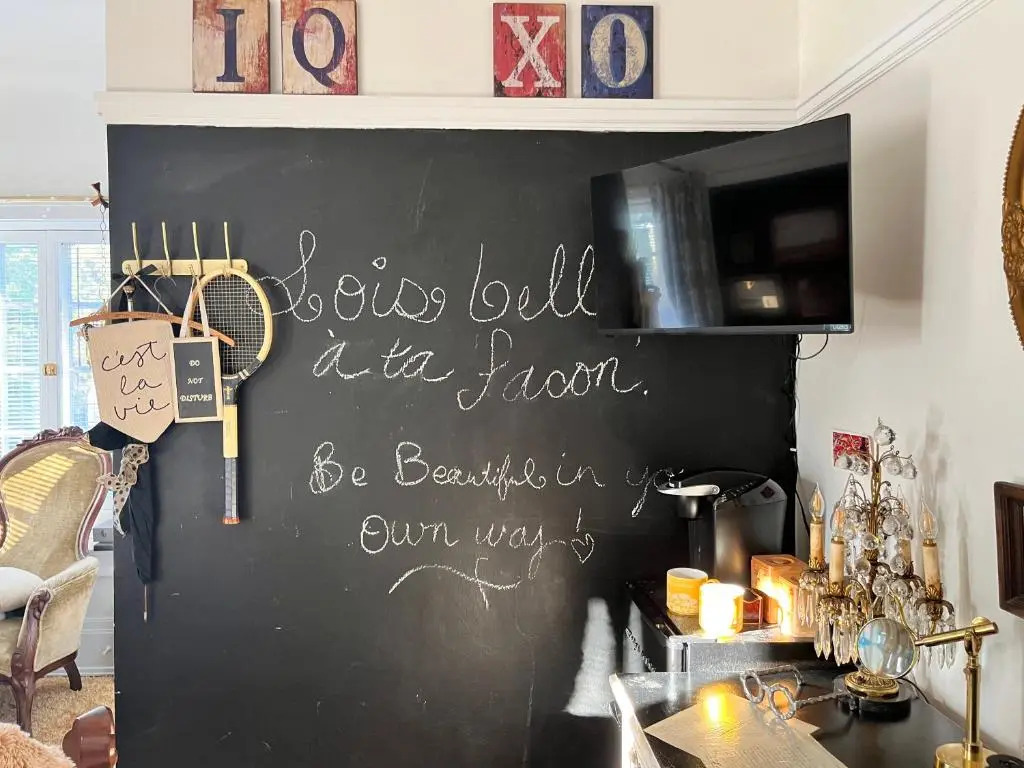 I Q X O
Sois bell
à ta facon.
c'est
la
vie
DO
NOT
DISTURB
Be Beautiful in yo
Own way!